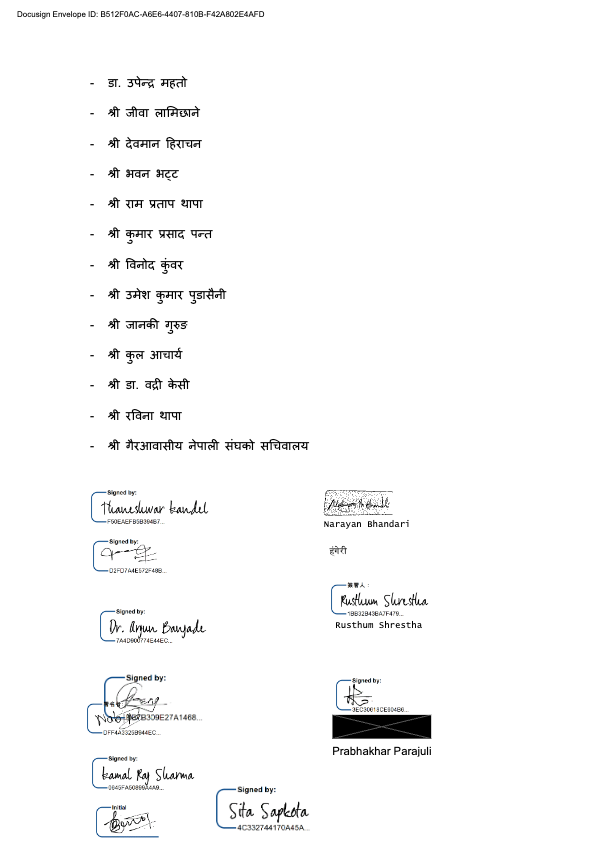 Docusign Envelope ID: B512F0AC-A6E6-4407-810B-F42A802E4AFD
- डा. उपेन्द्र महतो
- श्री जीवा लामिछाने
- श्री देवमान हिराचन
- श्री भवन भट्ट
- श्री राम प्रताप थापा
- श्री कुमार प्रसाद पन्त
- श्री विनोद कुंवर
- श्री उमेश कुमार पुडासैनी
- श्री जानकी गुरुङ
- श्री कुल आचार्य
- श्री डा. वद्री केसी
- श्री रविना थापा
- श्री गैरआवासीय नेपाली संघको सचिवालय
Signed by:
Thaneshwar Kandel
F50EAEFB5B394B7...
Narayan Bhandari
Signed by:
D2FD7A4E572F48B...
हंगेरी
署名者：
Rusthum Shrestha
1BB32B43EA7F479...
Rusthum Shrestha
Signed by:
Dr. Arjun Banjade
7A4D900774E44EC...
Signed by:
DFF4A3325B944EC...
Signed by:
3EC30019CE604B6...
Prabhakhar Parajuli
Signed by:
Kamal Raj Sharma
0945FA50899A4A9...
Initial
Signed by:
Sita Sapkota
4C332744170A45A...